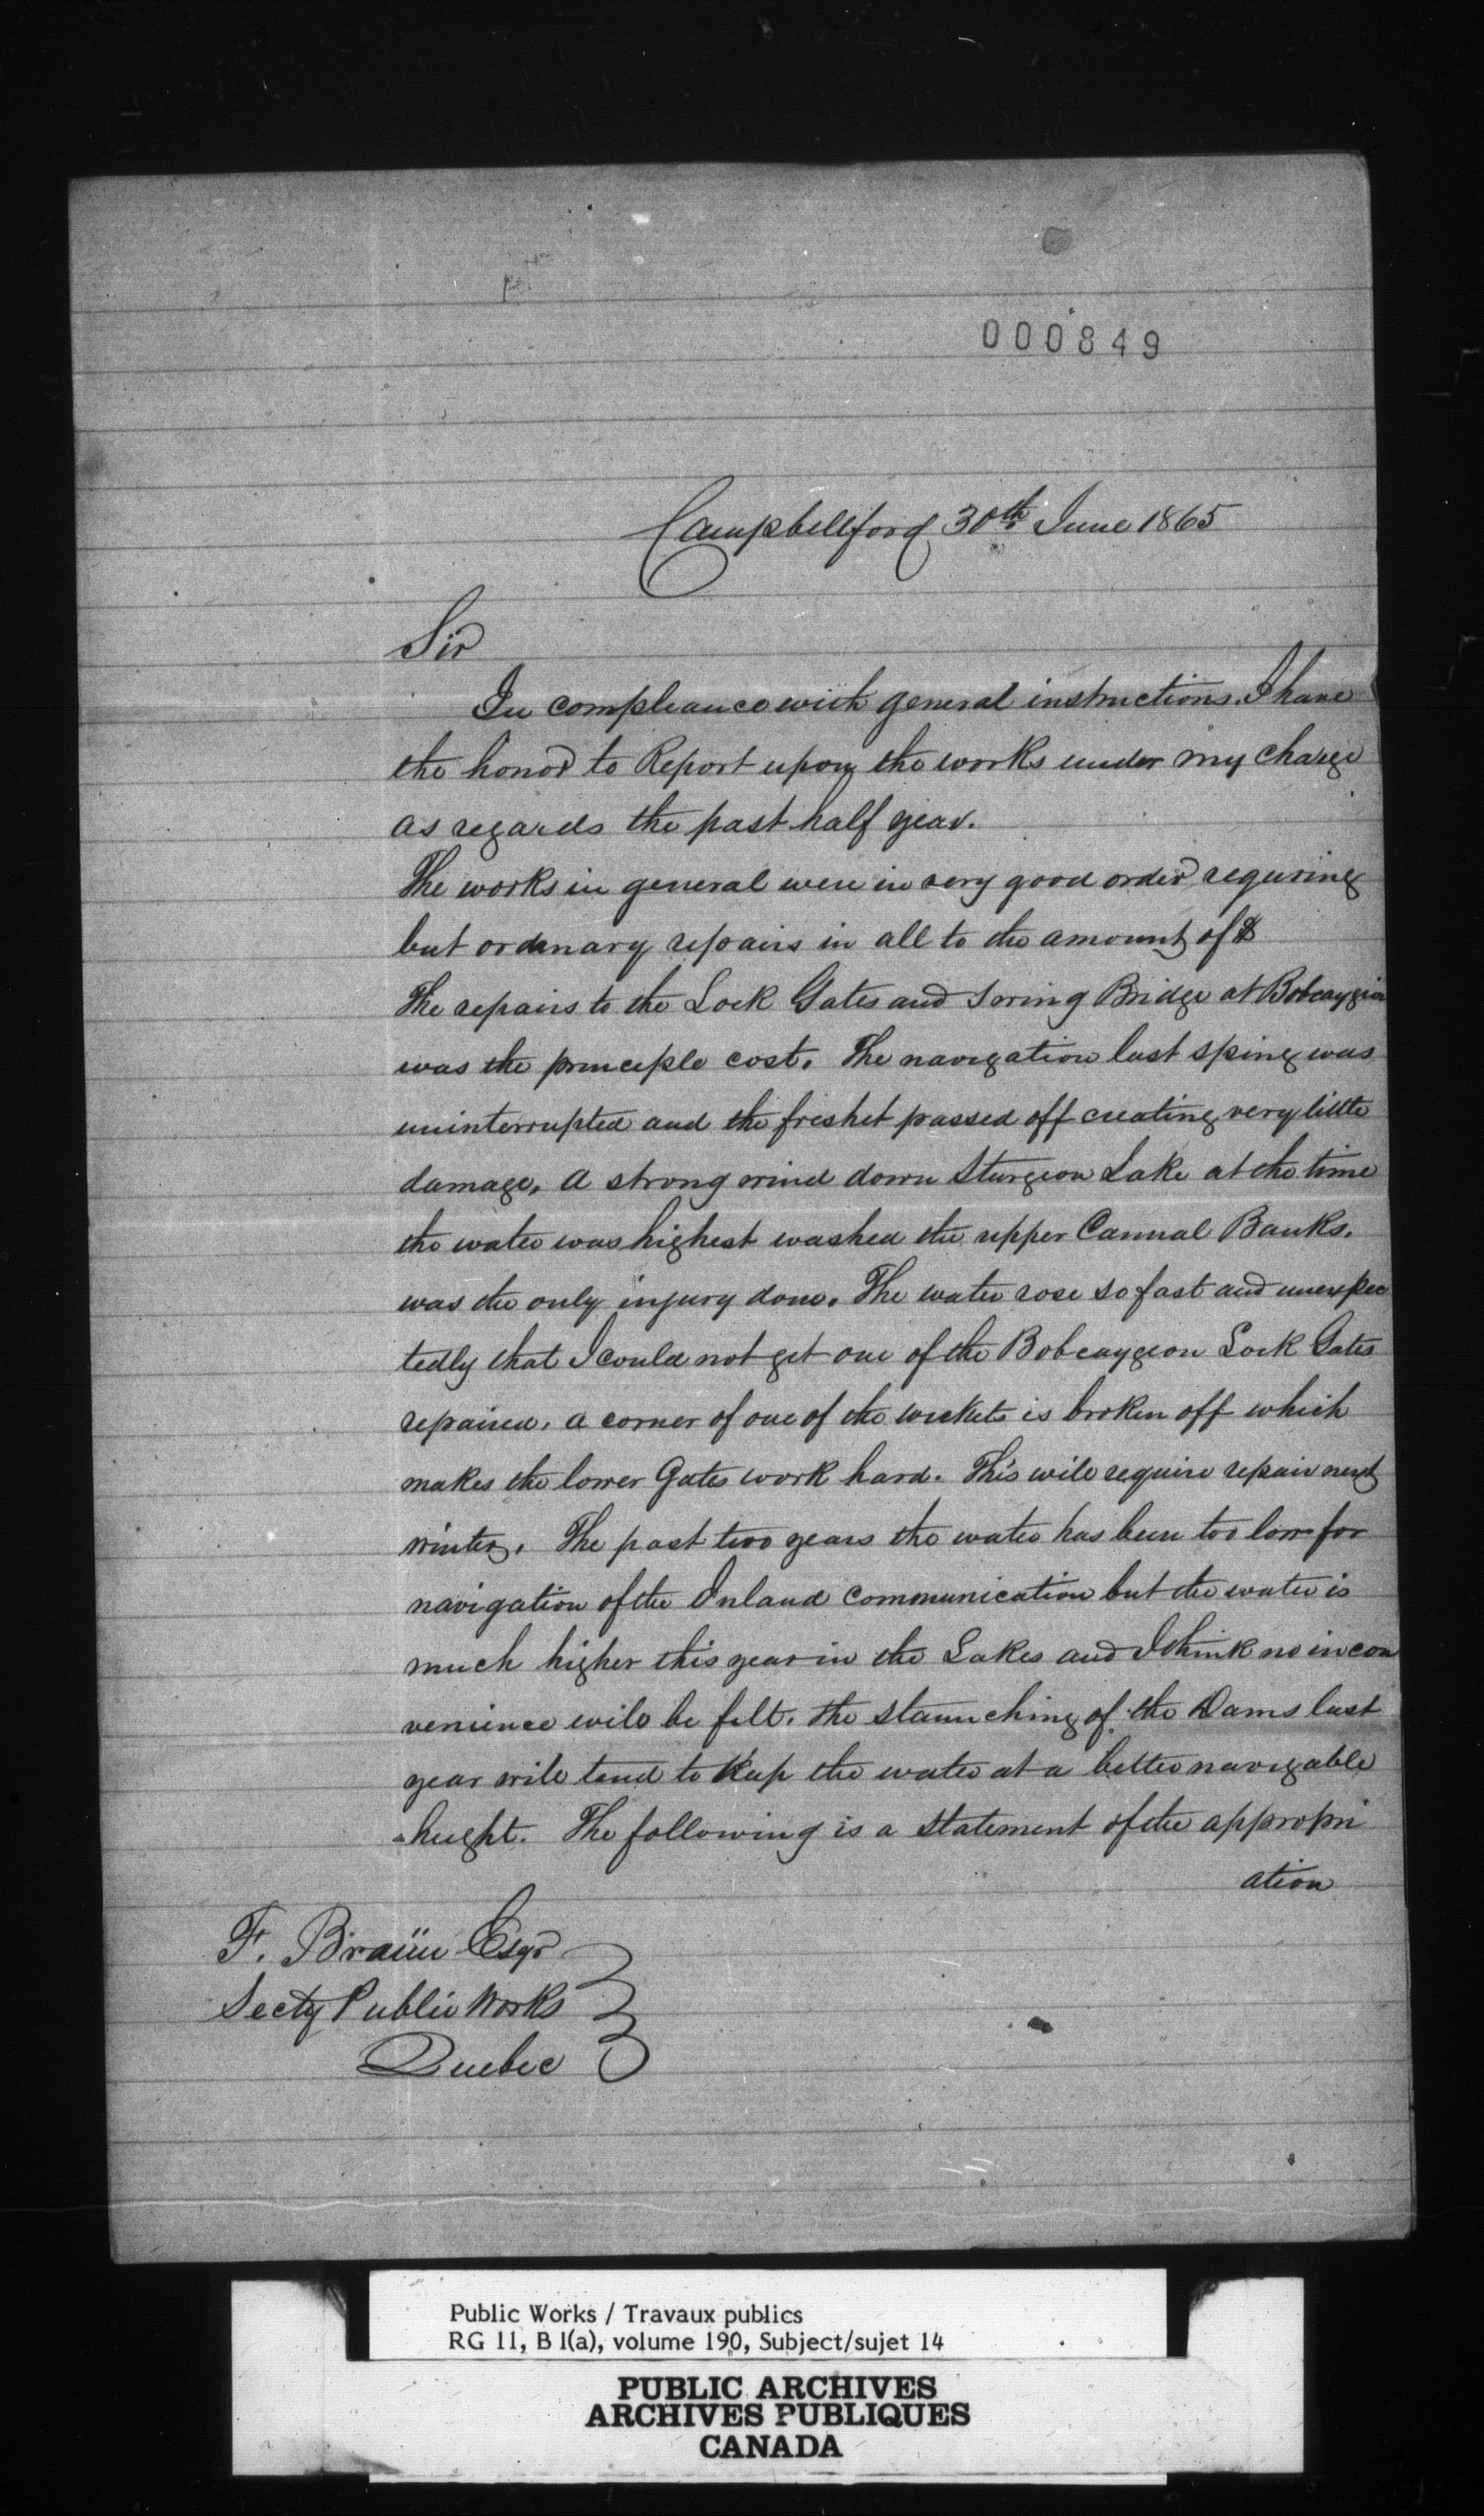 000849
Campbellford 30th June 1865
Sir
In compliance with general instructions. I have
the honor to Report upon the works under my charge
as regards the past half year.
The works in general were in very good order requiring
but ordinary repairs in all to the amount of $
The repairs to the Lock Gates and Swing Bridge at Bobcaygeon
was the principle cost. The navigation last sping was
uninterrupted and the freshet passed off creating very little
damage, a strong wind down Sturgeon Lake at the time
the water was highest washed the upper Cannal Banks.
was the only injury done. The water rose so fast and unexpec
tedly that I could not get one of the Bobcaygeon Lock Gates
repaired, a corner of one of the wickets is broken off which
makes the lower Gates work hard. This will require repair next
winter. The past two years the water has been too low for
navigation of the Inland communication but the water is
much higher this year in the Lakes and I think no incon
venience will be felt. the staunching of the Dams last
year will tend to keep the water at a better navigable
height. The following is a statement of the appropri
ation
F. Braün Esqr
Secty Public Works
Quebec
Public Works / Travaux publics
RG 11, B 1(a), volume 190, Subject/sujet 14
PUBLIC ARCHIVES
ARCHIVES PUBLIQUES
CANADA